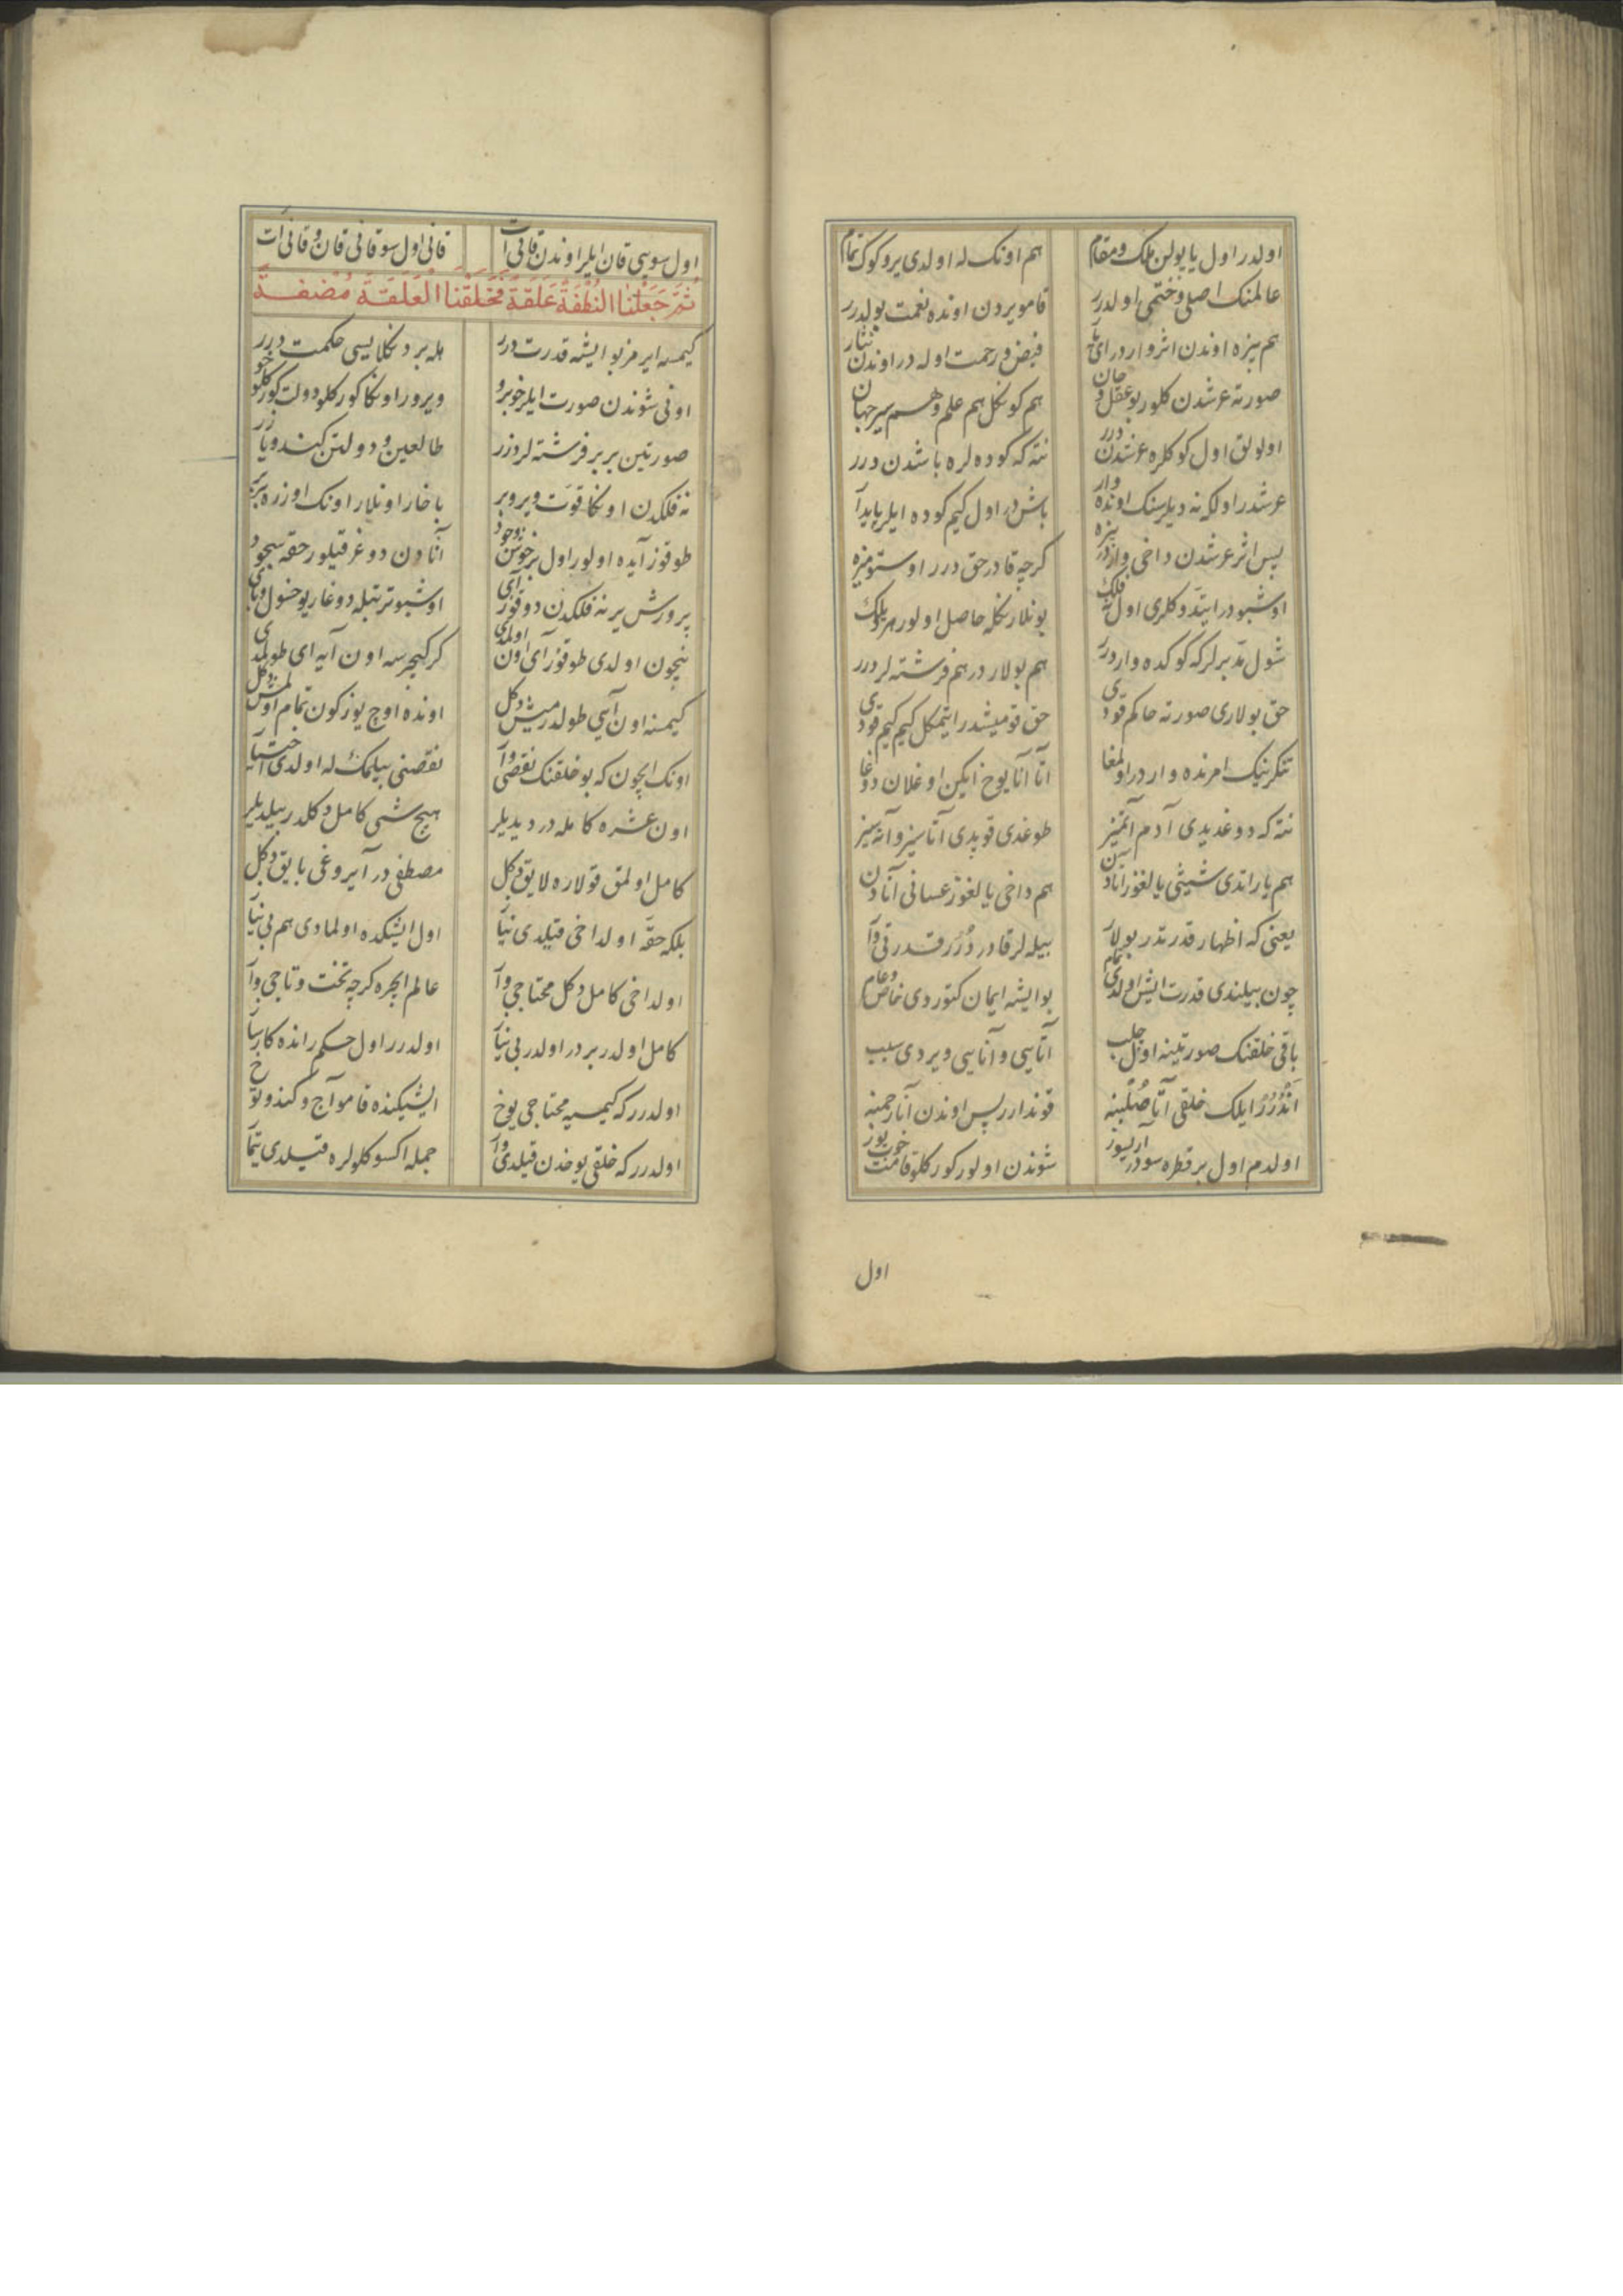 اولدر اول یا یولن ملک و مقام هم اونک له اولدی یر و کوک تمام
عالمنک اصلی و ختمی اولدرر قامو یردن اونده نعمت بولدرر
هم بیزه اوندن اثر واردر ای فیض و رحمت اوله در اوندن نثار
صورته عرشدن کلور بو عقل و جان هم کوکل هم علم و هم سر جهان
اولولق اول کوکلره عرشدن درر نته که کوده لره باشدن درر
عرشدر اولکی نه دیلرسنک اونده وار باش در اول کیم کوده ایلر پایدار
پس اثر عرشدن داخی واردر بیزه کرچه قادر حق درر اوستومیزه
اوشبودر ایتدوکلری اول نه فلک بونلارنکله حاصل اولور هر دیلک
شول مدبرلر که کوکده واردرر هم بولار در هم فرشته لر درر
حق بولاری صورته حاکم قودی حق قومیشدر ایتمکل کیم کیم قودی
تنکرینک امرنده واردر اولمغا اتا آنا یوخ ایکن اوغلان دوغا
نته که دوغدیدی آدم آتمیز طوغدی قوپدی آتاسیز و آنه سیز
هم یاراتدی شیثی یالغوز آتادن هم داخی یالغوز عسانی آنادن
یعنی که اظهار قدرتدر بولار بیله لر قادر درر قدرتی وار
چون بیلندی قدرت ایش اولدی تمام بو ایشه ایمان کتوردی خاص و عام
باقی خلقنک صورتینه اول چلب آتاسی و آناسی ویردی سبب
اندرر ایلک خلقی آتا صلبینه قوندارر پس اوندن آنا رحمینه
اولدم اول بر قطره سودر آریسوز شوندن اولور کورکلو قامت خوب یوز
اول
اول سویی قان ایلر اوندن قانی ات قانی اول سو قانی قان و قانی ات
ثُمَّ جَعَلْنَا النُّطْفَةَ عَلَقَةً فَخَلَقْنَا الْعَلَقَةَ مُضْغَةً
کیمسه ایرمز بو ایشه قدرت درر هله بر دنکلایسی حکمت درر
اونی شوندن صورت ایلر خوبرو ویرور اونکا کورکلو دولت کورکلو خو
صورتین بر بر فرشته لر دزر طالعین و دولتن کندو یازر
نه فلکدن اونکا قوت ویرویر باخار اونلار اونک اوزره بیر بیر
طوقوز آیده اولور اول بر خوش وجود آنادن دوغر قیلور حقه سجود
پرورش یر نه فلکدن دوقوز آی اوشبو ترتیبله دوغار یوخسول و بای
نیچون اولدی طوقوز آی اون اولمدی کر کیچرسه اون آیه ای طولمدی
کیمنه اون آیی طولدرمیش دکل اونده اوچ یوز کون تمام اولمیش دکل
اونک ایچون که بو خلقنک نقصی وار نقصنی بیلمک له اولدی اختیار
اون عشره کامله در دیدیلر هیچ شی کامل دکلدر بیلدیلر
کامل اولمق قولاره لایق دکل مصطفی در آیروغی بایق دکل
بلکه حقه اولداخی قیلدی نیاز اول ایشکده اولمادی هم بی نیاز
اولداخی کامل دکل محتاجی وار عالم ایچره کرچه تخت و تاجی وار
کامل اولدر بردر اولدر بی نیاز اولدرر اول حکم راند کارساز
اولدرر که کیمسیه محتاجی یوخ ایشیکنده قامو آج و کندو توخ
اولدرر که خلقی یوخدن قیلدی وار جمله اکسوکلولره قیلدی تیمار